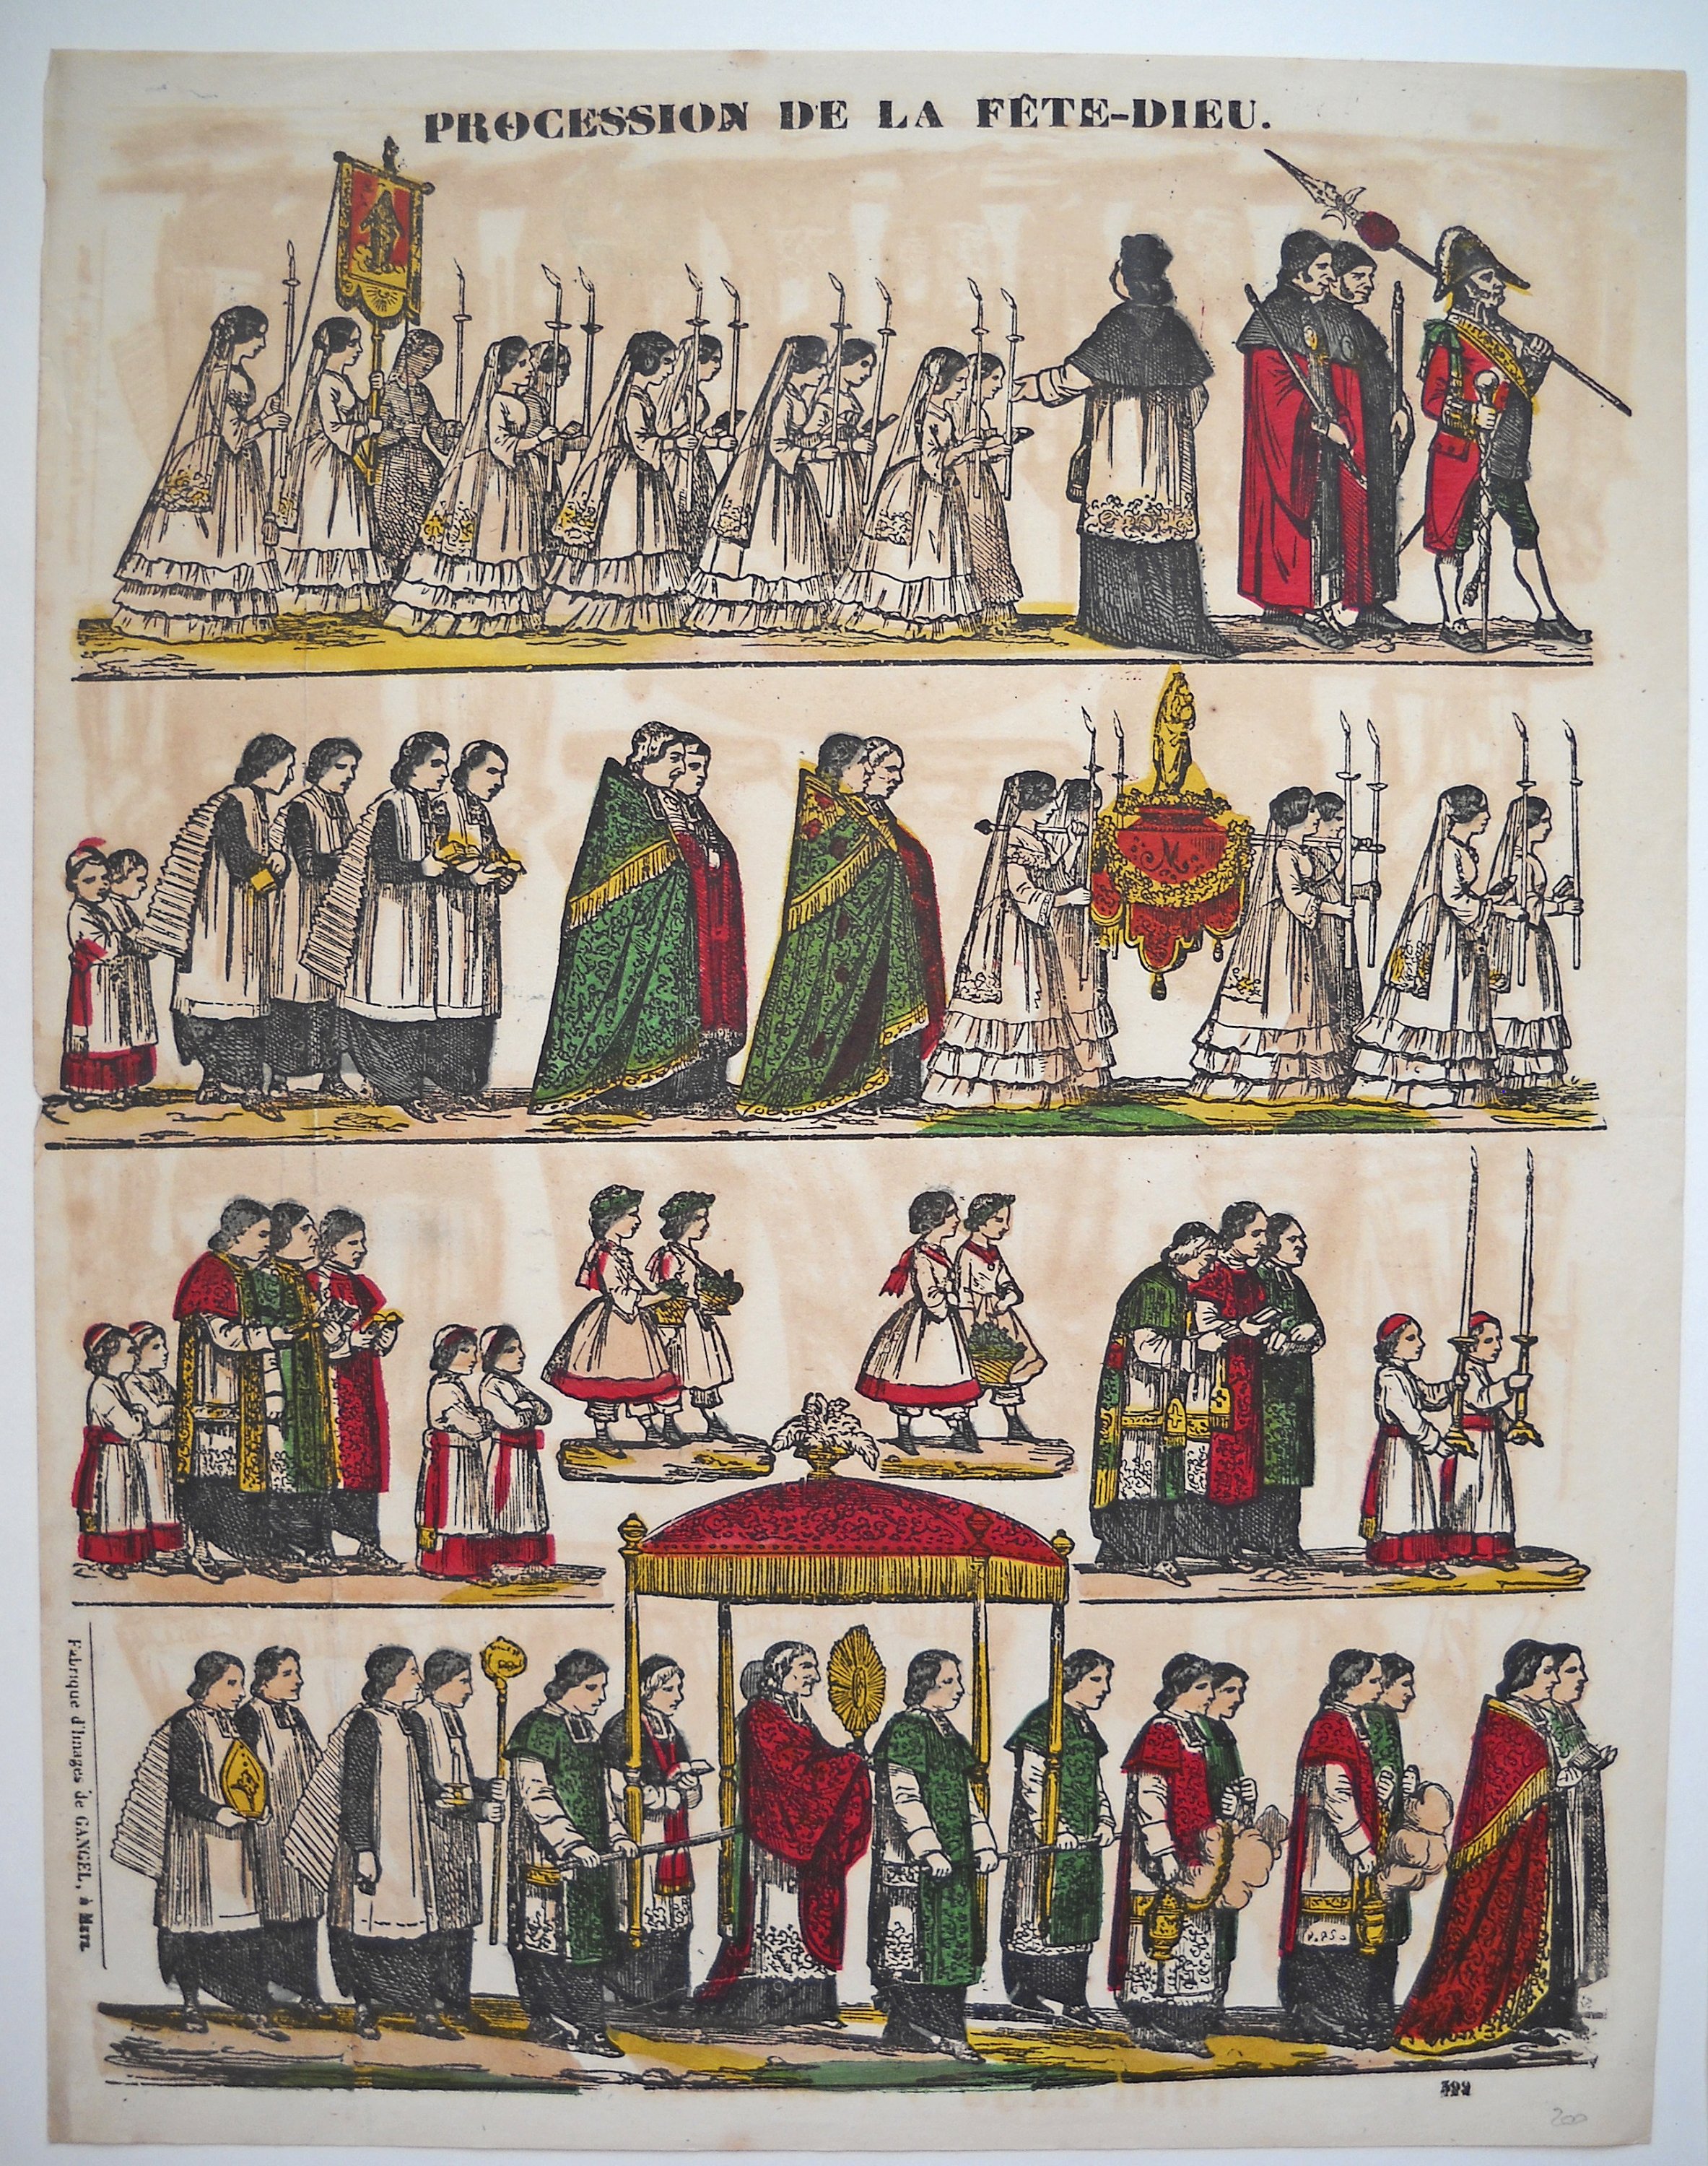 PROCESSION DE LA FÊTE-DIEU.
M
Fabrique d'Images de GANGEL, à Metz
399
200